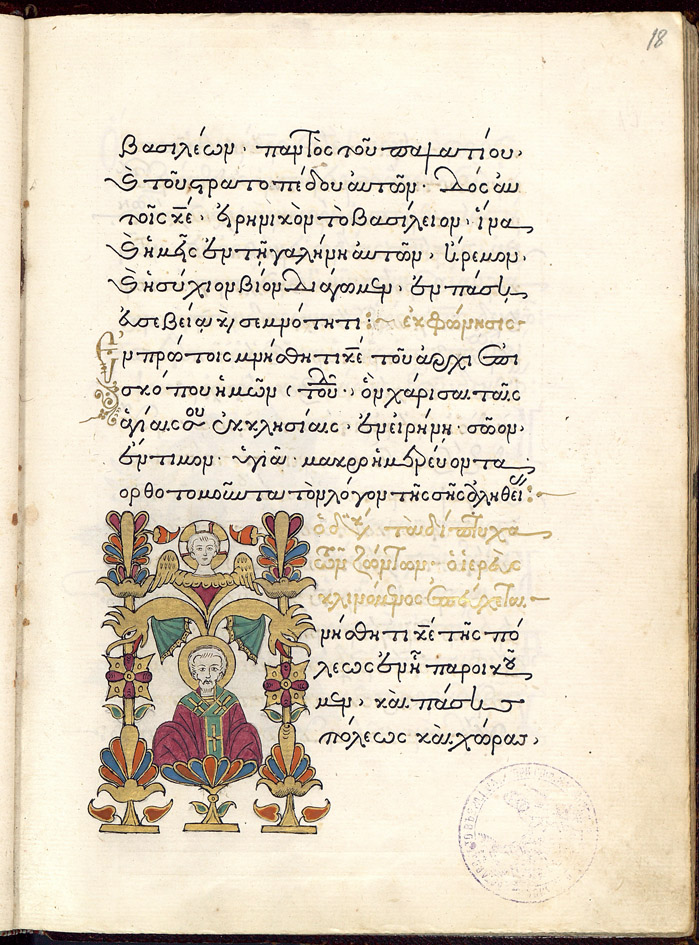 18
βασιλέων· παντὸς τοῦ παλατίου·
καὶ τοῦ στρατοπέδου αὐτῶν· Δὸς αὐ
τοῖς κε· εἰρηνικὸν τὸ βασίλειον· ἵνα
καὶ ἡμεῖς ἐν τῇ γαλήνῃ αὐτῶν· ἤρεμον·
καὶ ἡσύχιον βίον διάγωμεν· ἐν πάσῃ
εὐσεβείᾳ καὶ σεμνότητι: ἐκφώνησις
Ἐν πρώτοις μνήσθητι κε τοῦ ἀρχιεπι
σκόπου ἡμῶν (τοῦ δ·) ὃν χάρισαι ταῖς
ἁγίαις σου ἐκκλησίαις· ἐν εἰρήνῃ· σῶον·
ἔντιμον· ὑγιᾶ· μακροημερεύοντα
ὀρθοτομοῦντα τὸν λόγον τῆς σῆς ἀληθείας:
ὁ διάκ τὰ δίπτυχα
τῶν ζώντων· ὁ ἱερεὺς
κλινόμενος ἐπεύχεται
μνήσθητι κε τῆς πό
λεως ἐν ᾗ παροικοῦ
μεν· καὶ πάσης
πόλεως καὶ χώρας·